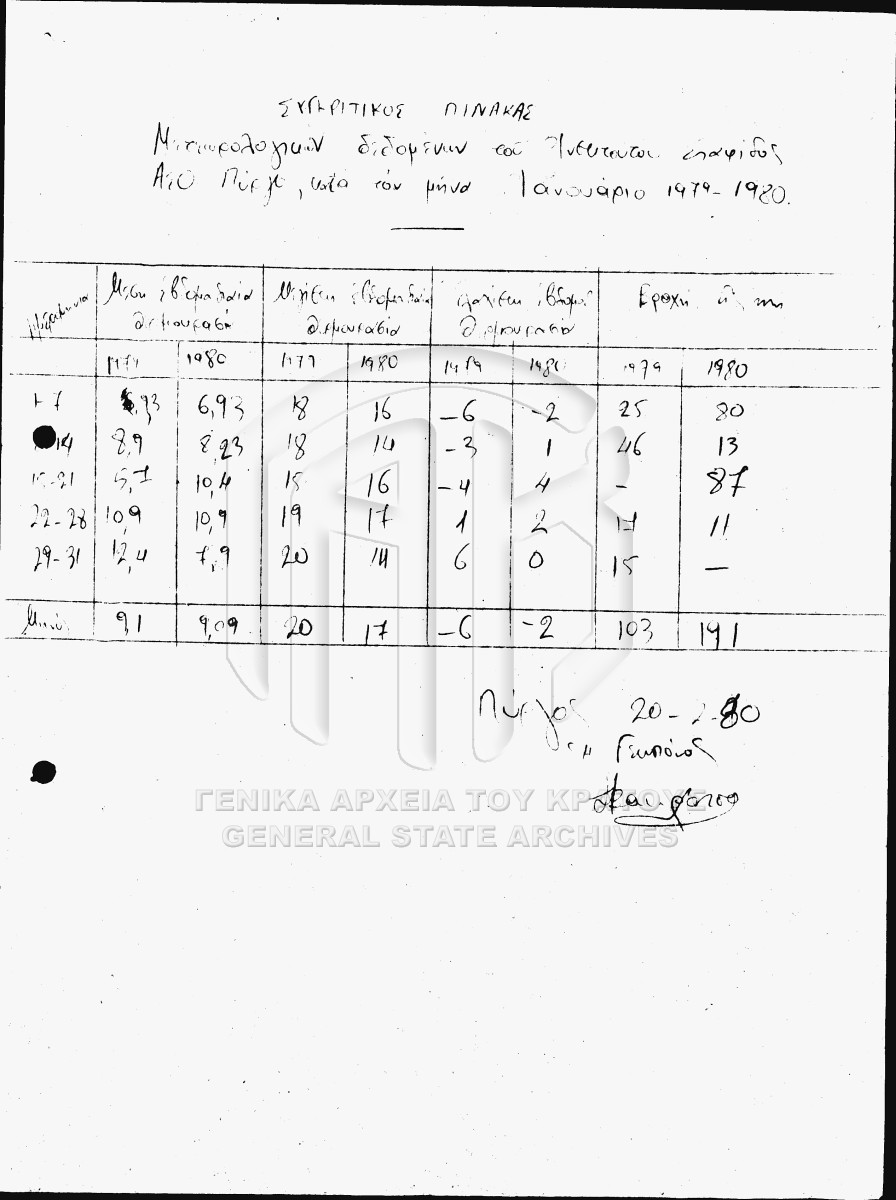 ΣΥΓΚΡΙΤΙΚΟΣ ΠΙΝΑΚΑΣ
Μετεωρολογικών δεδομένων του Ινστιτούτου σταφίδος
ΑΣΟ Πύργο, κατά τον μήνα Ιανουάριο 1979-1980.
Ημερομηνία Μέση εβδομαδιαία Μεγίστη εβδομαδιαία ελαχίστη εβδομ. Βροχή εις mm
θερμοκρασία θερμοκρασία θερμοκρασία
1979 1980 1979 1980 1979 1980 1979 1980
1-7 6,93 18 16 -6 -2 25 80
14 8,9 8,23 18 14 -3 1 46 13
15-21 5,7 10,4 15 16 -4 4 - 87
22-28 10,9 10,9 19 17 1 2 17 11
29-31 12,4 7,9 20 14 6 0 15 -
91 9,09 20 17 -6 -2 103 191
Πύργος 20-2-80
Γεωπόνος
ΓΕΝΙΚΑ ΑΡΧΕΙΑ ΤΟΥ ΚΡΑΤΟΥΣ
GENERAL STATE ARCHIVES